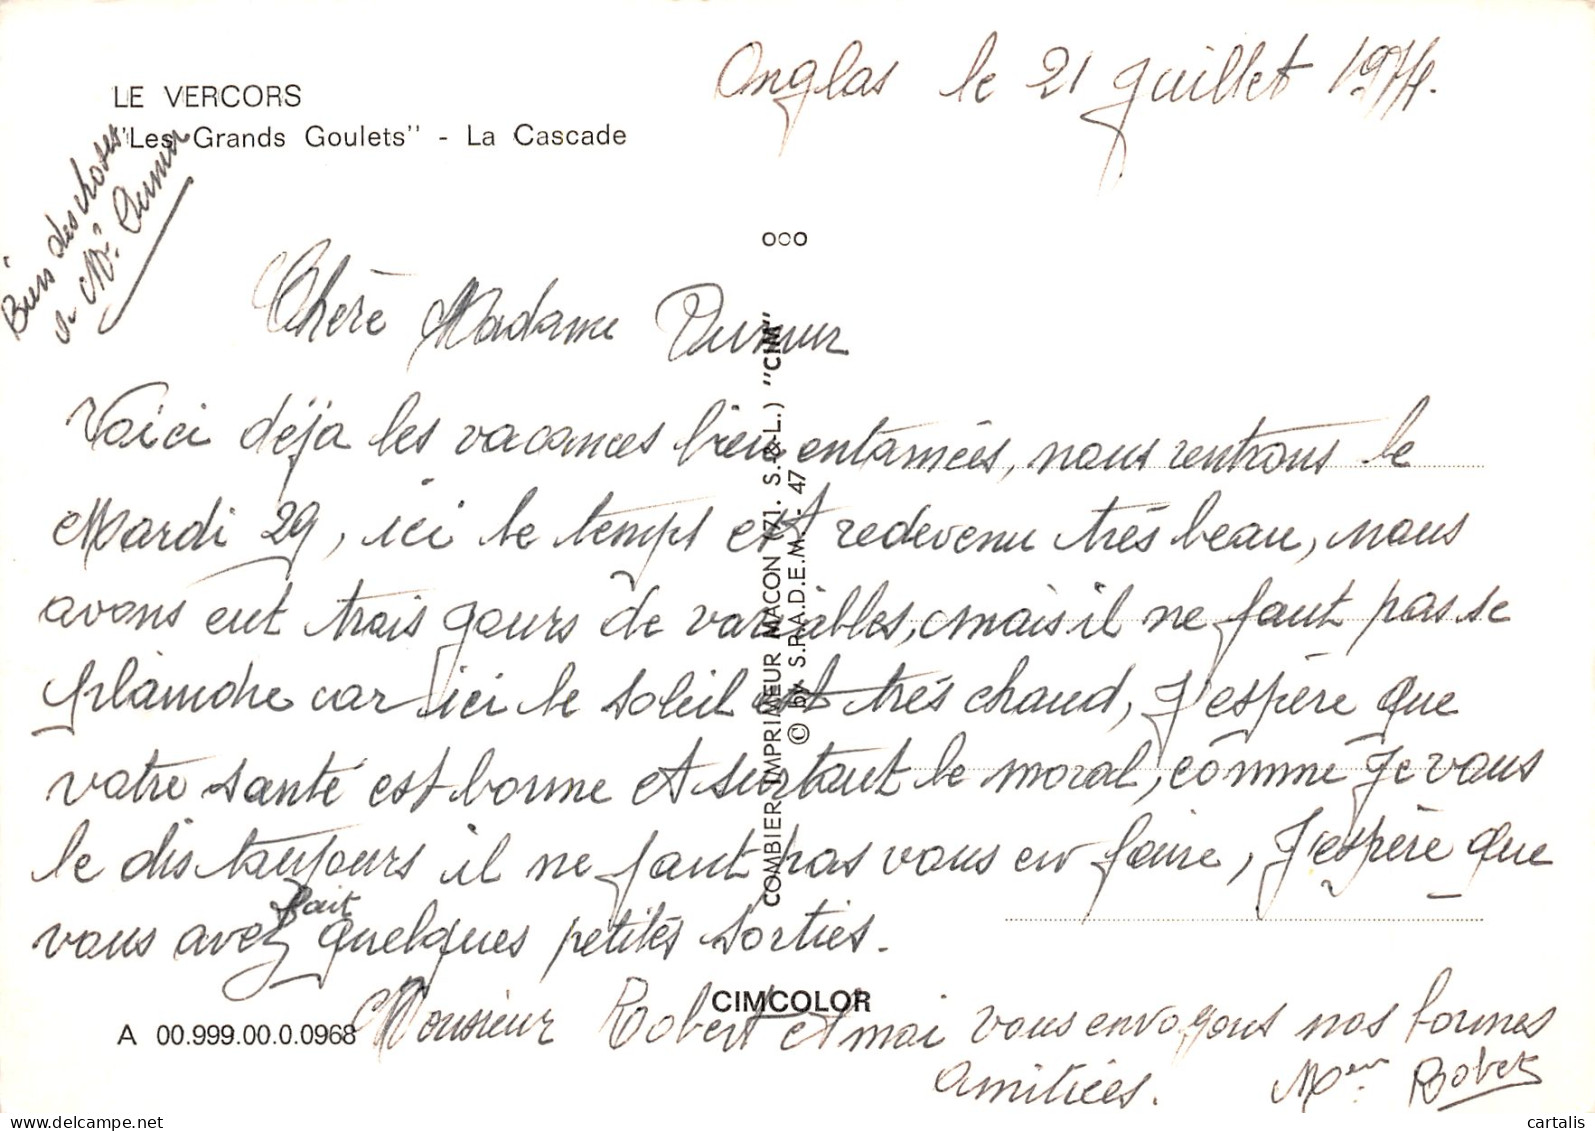 LE VERCORS
"Les Grands Goulets" - La Cascade
Onglas le 21 Juillet 1974.
Bien des choses
à Mr Dumur
Chère Madame Dumur
Voici déja les vacances bien entamées, nous rentrons le
Mardi 29, ici le temps est redevenu très beau, nous
avons eut trois jours de variables, mais il ne faut pas se
plaindre car ici le soleil est très chaud, J'espère que
votre santé est bonne et surtout le moral, comme Je vous
le dis toujours il ne faut pas vous en faire, J'espère que
vous avez fait quelques petites sorties.
Monsieur Robert et moi vous envoyons nos bonnes
amitiées. Mme Robert
COMBIER IMPRIMEUR MACON (71. S.-&-L.) "CIM"
© by S.P.A.D.E.M. - 47
CIMCOLOR
A 00.999.00.0.0968
delcampe.net
cartalis